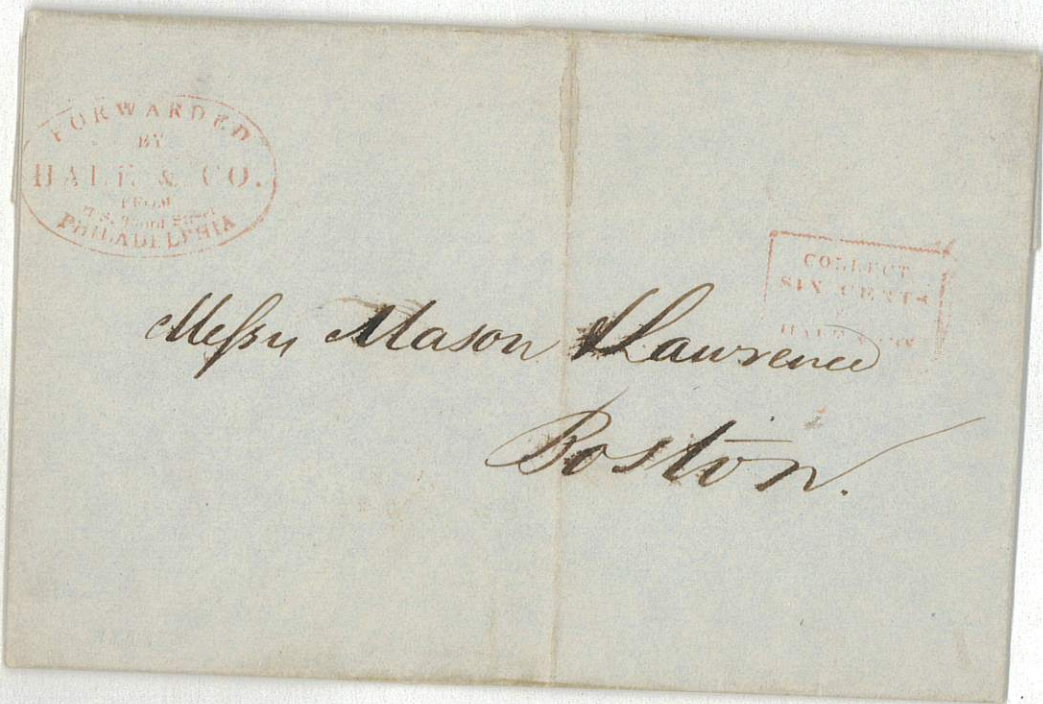 FORWARDED
BY
HALE & CO.
FROM
Street
PHILADELPHIA
COLLECT
SIX CENTS
HALE & CO
Messrs Mason & Lawrence
Boston.